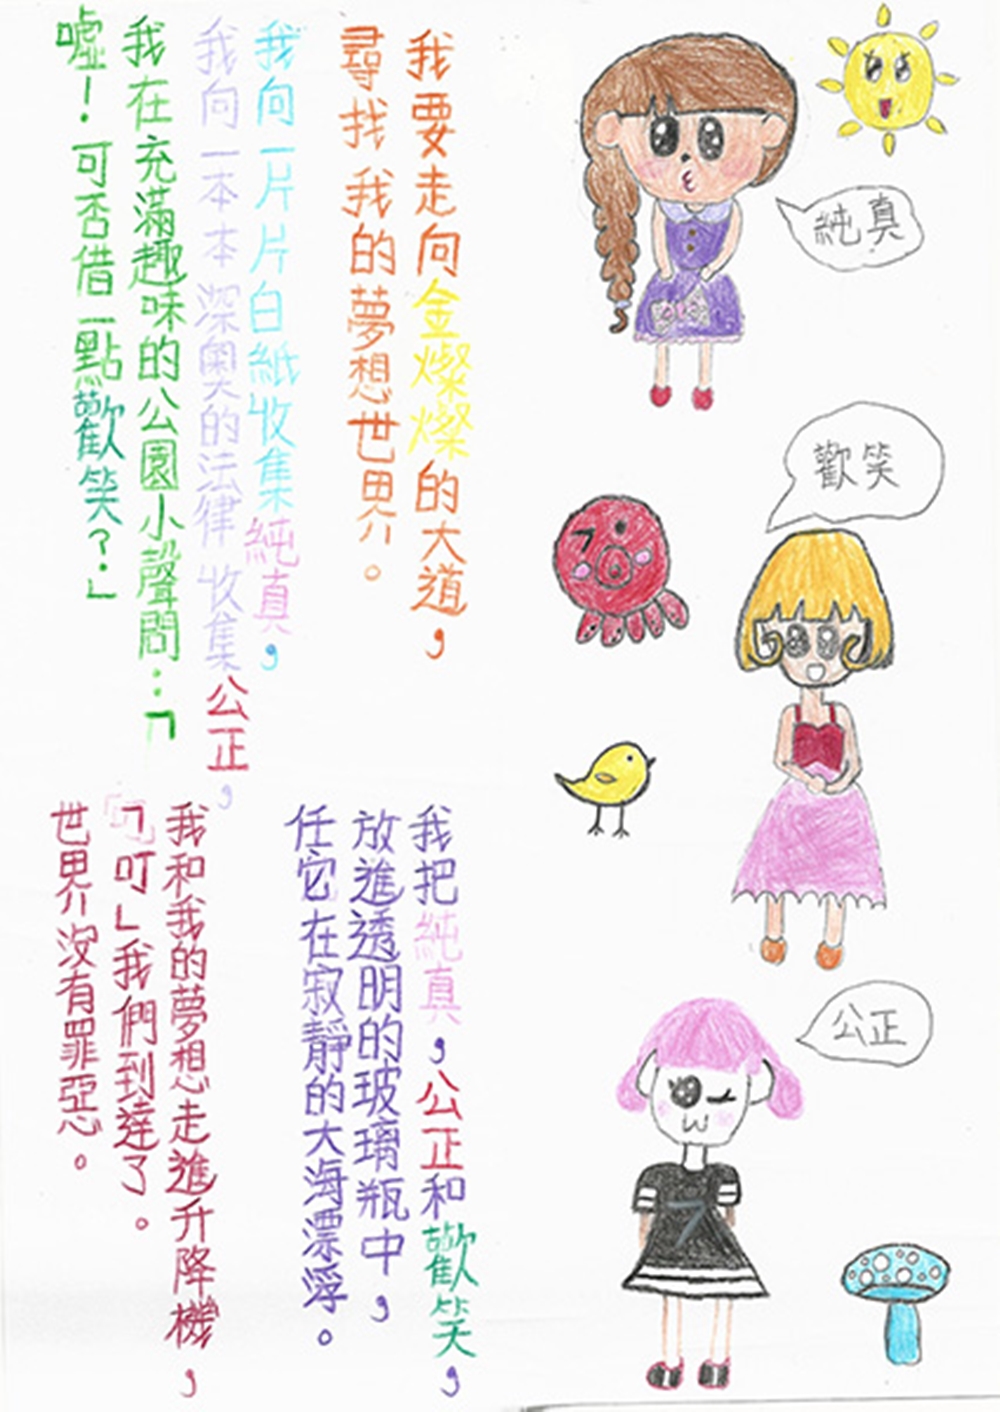 我要走向金燦燦的大道，
尋找我的夢想世界。
我向一片片白紙收集純真，
我向一本本深奧的法律收集公正，
我在充滿趣味的公園小聲問：「
噓！可否借一點歡笑？」
我把純真，公正和歡笑，
放進透明的玻璃瓶中，
任它在寂靜的大海漂浮。
我和我的夢想走進升降機，
「叮」我們到達了。
世界沒有罪惡。
純真
歡笑
公正